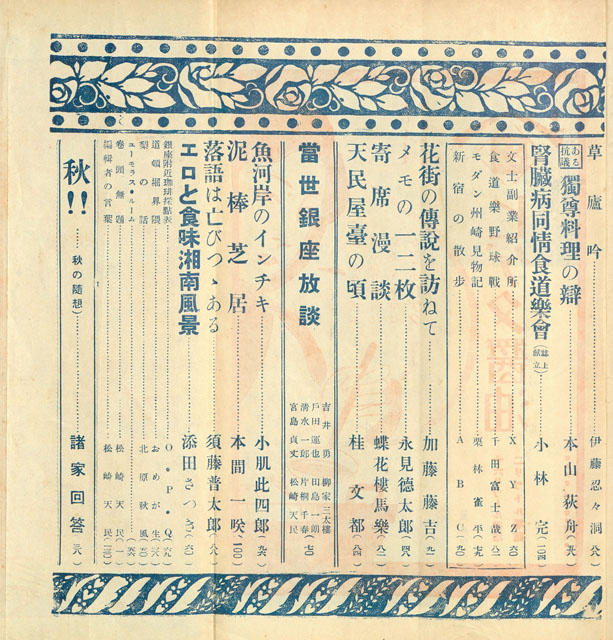 草廬吟……伊藤忍々洞
ある抗議 獨尊料理の辯……本山荻舟
腎臓病同情食道樂會（誌上献立）……小林完（一〇四）
文士副業紹介所……X Y Z
食道樂野球戰……千田富士哉
モダン州崎見物記……栗林雀平
新宿の散步……A B C
花街の傳說を訪ねて……加藤藤吉
メモの一二枚……永見德太郎
寄席漫談……蝶花樓馬樂
天民屋臺の頃……桂文都（八四）
當世銀座放談
吉井勇 柳家三太樓
戶田運也 田島一朗
清水一郎 片桐千春
宮島貞丈 松崎天民
魚河岸のインチキ……小肌此四郎
泥棒芝居……本間一咲（一〇〇）
落語は亡びつゝある……須藤普太郎
エロと食味湘南風景……添田さつき
銀座附近珈琲採點表……O・P・Q
道頓堀界隈……おめが生
梨の話……北原秋風
ユーモラス・ルーム
卷頭無題……松崎天民（一）
編輯者の言葉……松崎天民
秋!!……秋の隨想）……諸家回答